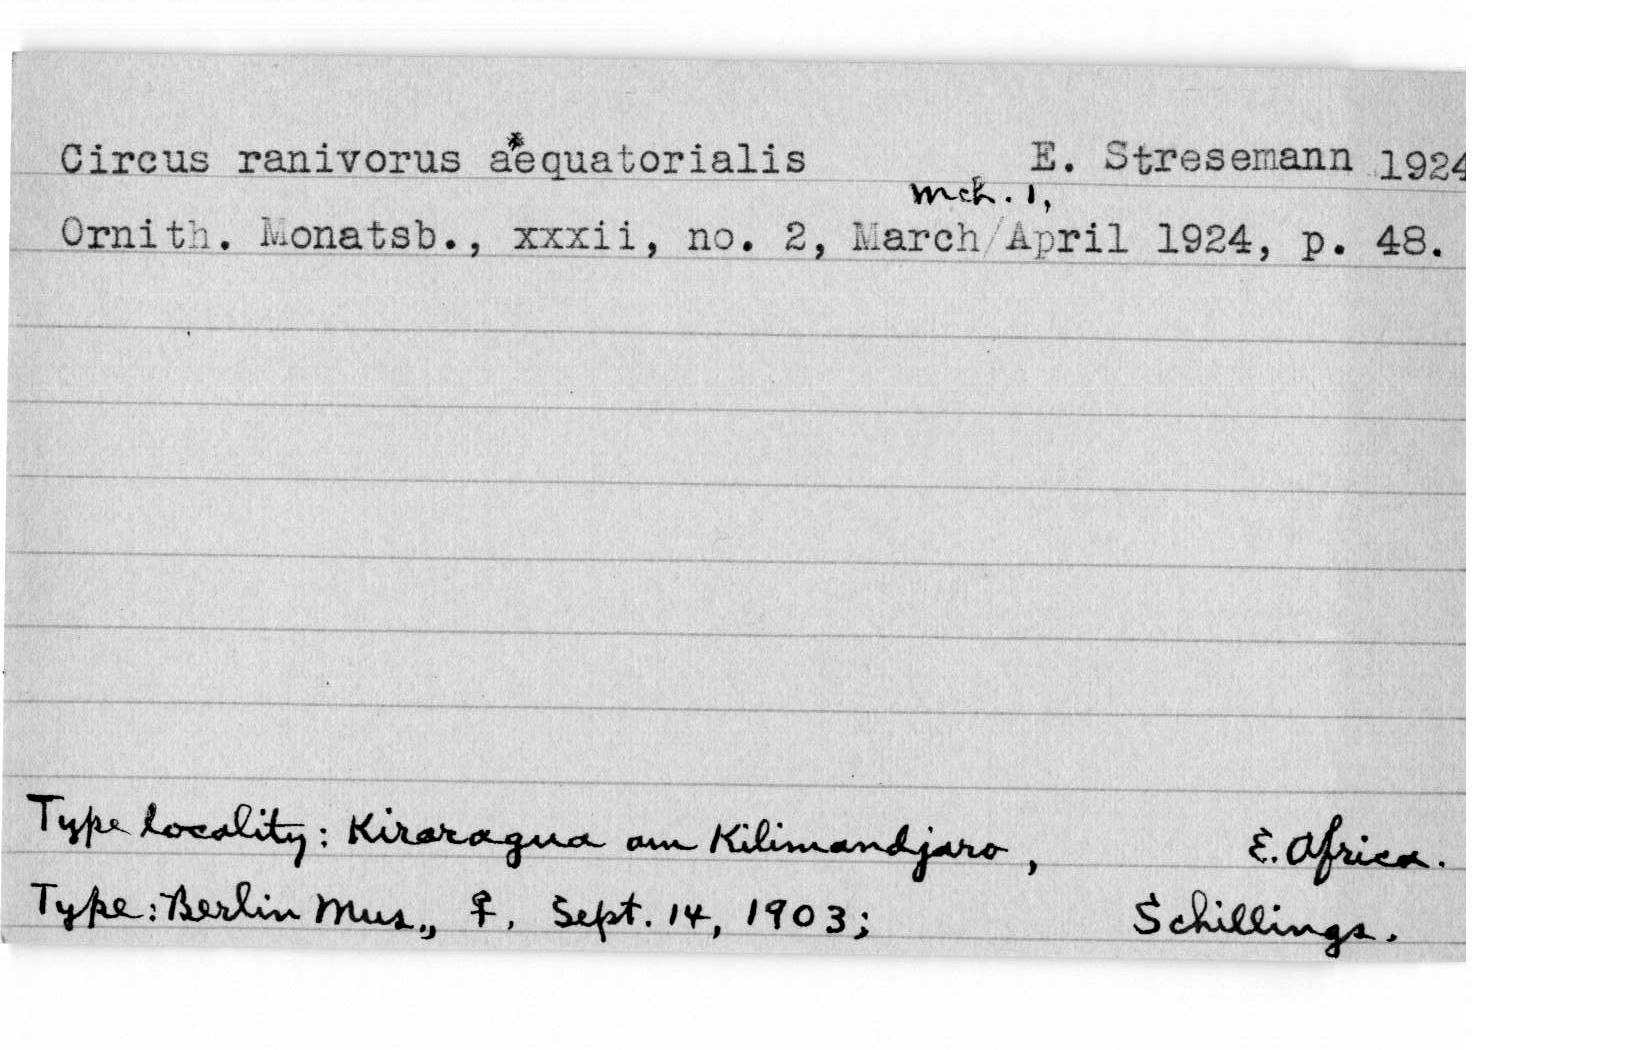 Circus ranivorus aequatorialis E. Stresemann 1924
Mch. 1,
Ornith. Monatsb., xxxii, no. 2, March/April 1924, p. 48.
Type locality: Kiraragua am Kilimandjaro, E. Africa.
Type: Berlin Mus., ♀. Sept. 14, 1903; Schillings.